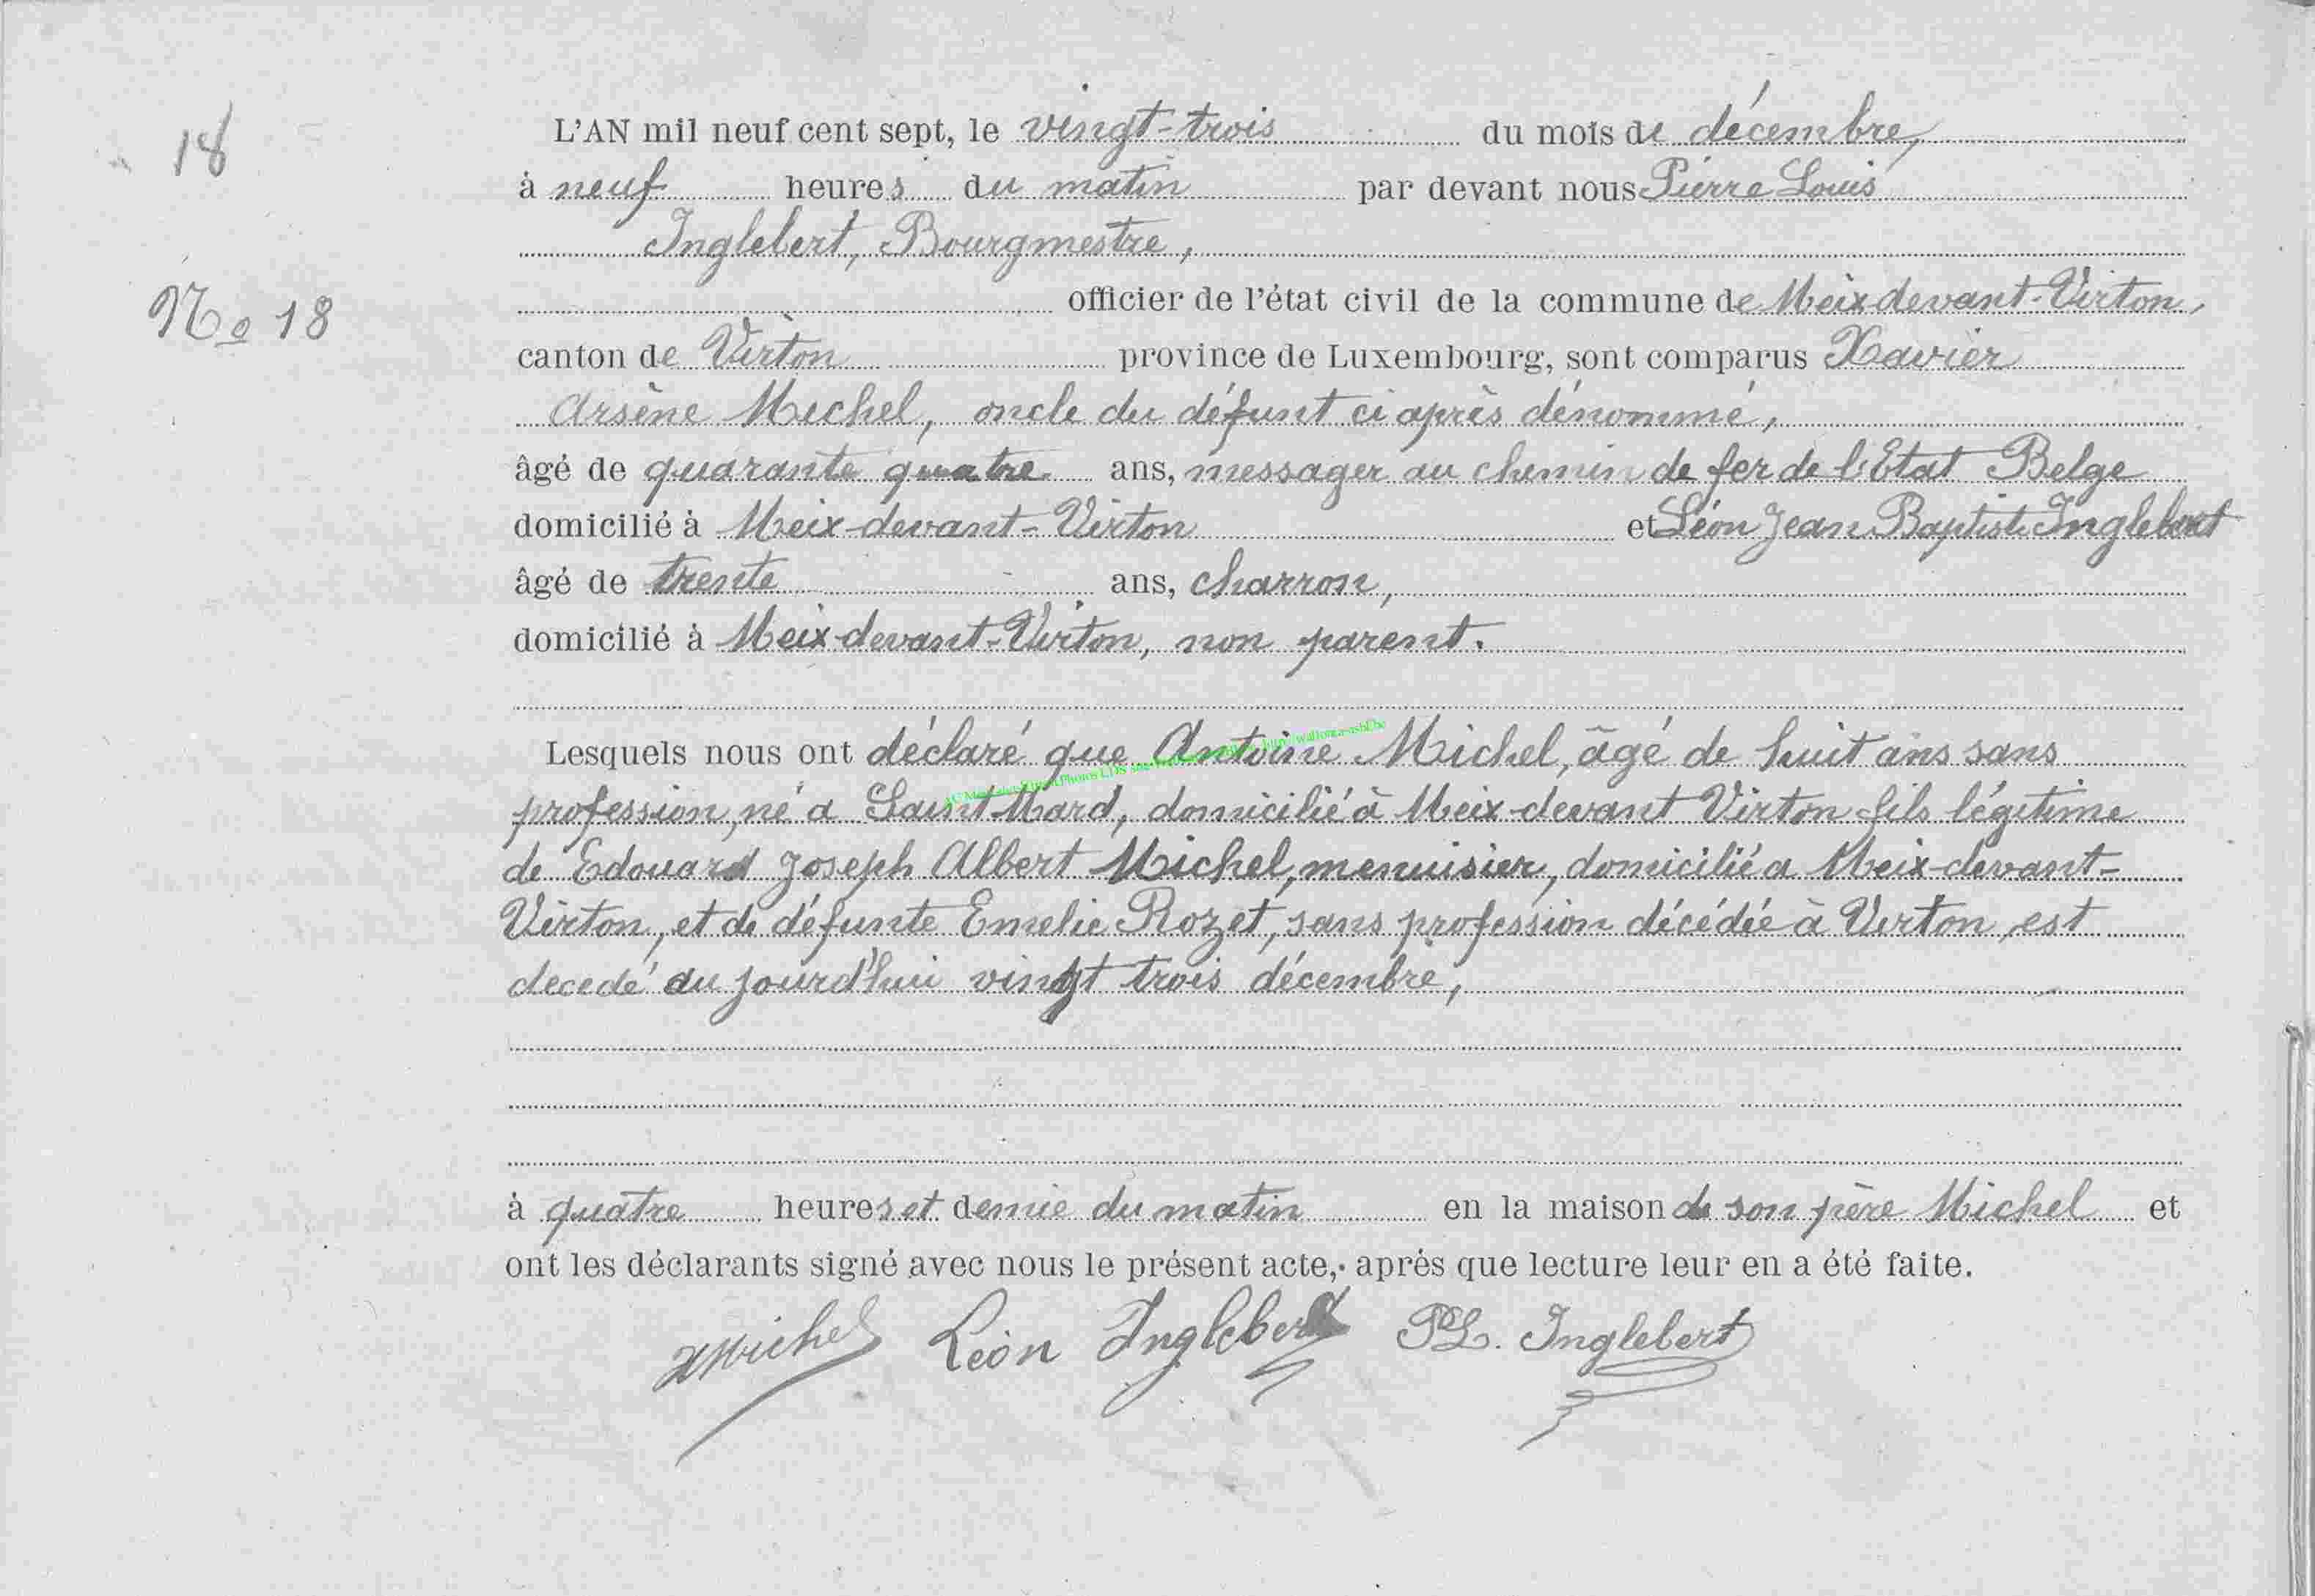 18
L'AN mil neuf cent sept, le vingt-trois du mois de décembre,
à neuf heures du matin par devant nous Pierre Louis
Inglebert, Bourgmestre,
No 18
officier de l'état civil de la commune de Meix-devant-Virton,
canton de Virton province de Luxembourg, sont comparus Xavier
Arsène Michel, oncle du défunt ci après dénommé,
âgé de quarante quatre ans, messager au chemin de fer de l'Etat Belge
domicilié à Meix-devant-Virton et Léon Jean Baptiste Inglebert
âgé de trente ans, charron,
domicilié à Meix-devant-Virton, non parent.
Lesquels nous ont déclaré que Antoine Michel, âgé de huit ans sans
profession, né a Saint Mard, domicilié à Meix-devant Virton fils légitime
de Edouard Joseph Albert Michel, menuisier, domicilié a Meix-devant-
Virton, et de défunte Emelie Rozet, sans profession décédée à Virton, est
decedé au jourd'hui vingt trois décembre,
à quatre heures et demie du matin en la maison de son père Michel et
ont les déclarants signé avec nous le présent acte, après que lecture leur en a été faite.
XMichel Léon Inglebert PL. Inglebert